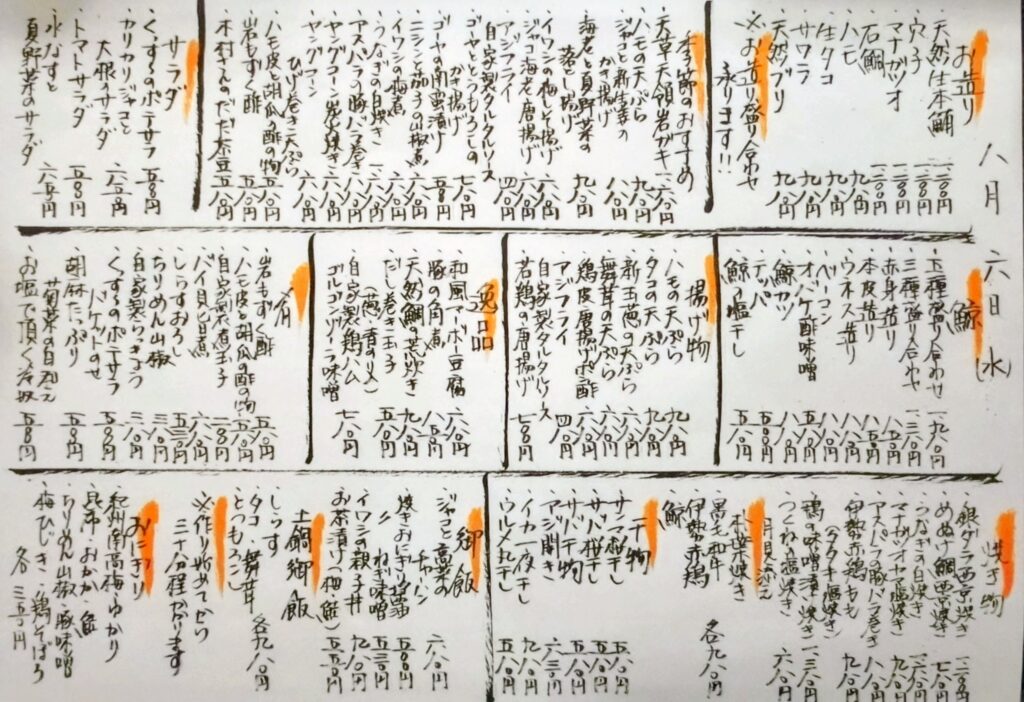 八月六日(水)
お造り
・天然生本鮪 一二〇〇円
・穴子 一一〇〇円
・マナガツオ 一一〇〇円
・石鯛 一一〇〇円
・ハモ 九八〇円
・生タコ 九八〇円
・サワラ 九八〇円
・天然ブリ 九八〇円
※お造り盛り合わせ
承ります!!
本季節のおすすめ
・天草天領岩ガキ 一六〇〇円
・ハモの天ぷら 九八〇円
・ジャコと新生姜の
かき揚げ 八八〇円
・海老と夏野菜の
落とし揚げ 九八〇円
・イワシの梅しそ揚げ
・ジャコ海老唐揚げ
・アジフライ
自家製タルタルソース 四八〇円
・ゴーヤととうもろこしの
かき揚げ 七八〇円
・ゴーヤの南蛮漬け 五八〇円
・ニシンと茄子の山椒煮
・イワシの梅煮
・うなぎの白焼き
・アスパラの豚バラ巻き
・ヤングコーン炭焼き
・ヤングコーン
ひげ巻き天ぷら
・ハモ皮と胡瓜の酢の物
・岩もずく酢 五五〇円
・木村さんのだだ茶豆 五八〇円
サラダ
・くずきのポテサラ 五八〇円
・カリカリジャコと
大根のサラダ 六五〇円
・トマトサラダ 五八〇円
・水なすと
夏野菜のサラダ 六五〇円
鯨
・五種盛り合わせ 一九八〇円
・三種盛り合わせ 一三八〇円
・赤身造り
・本皮造り
・ウネス造り
・ベーコン
・オバケ酢味噌
・鯨カツ
・テッパ
・鯨の塩干し 五八〇円
揚げ物
・ハモの天ぷら 九八〇円
・タコの天ぷら 九八〇円
・新玉葱の天ぷら 六八〇円
・舞茸の天ぷら 六八〇円
・鶏皮唐揚げポン酢
・アジフライ
自家製タルタルソース 四八〇円
・若鶏の唐揚げ 七八〇円
逸品
・和風マーボ豆腐 六八〇円
・豚の角煮 八八〇円
・天然鯛の荒炊き 九八〇円
・だし巻き玉子 五八〇円
(葱)
・自家製鶏ハム
ゴルゴンゾーラ味噌 七八〇円
肴
・岩もずく酢 五五〇円
・ハモ皮と胡瓜の酢の物
・自家製煮玉子
・バイ貝旨煮
・しらすおろし
・ちりめん山椒
・自家製らっきょう
・くずきのポテサラ
バケットのせ 五八〇円
・胡麻たっぷり
菊菜の白和え 五八〇円
・お塩で頂く冷奴 五八〇円
焼き物
・銀ダラ西京焼き 一二〇〇円
・めぬけ鯛西京焼き
・うなぎの白焼き
・マナガツオヤマ塩焼き
・アスパラの豚バラ巻き
・伊勢赤鶏もも
(タタキ塩焼き)
・鶏の味噌漬け焼き 一三八〇円
・つくね塩焼き
月見添え 六八〇円
朴葉焼き
・黒毛和牛
・伊勢赤鶏
・鯨 各九八〇円
干物
・サンマ桜干し 五八〇円
・サバ桜干し 五八〇円
・サバ干物 五八〇円
・アジ開き
・イカ一夜干し
・ウルメ丸干し 五八〇円
御飯
・ジャコと高菜の
チャーハン 六八〇円
・焼きおにぎり茶漬
・〃 ねぎ味噌
・イワシの親子丼 九八〇円
・お茶漬け(梅・鮭) 五五〇円
土鍋御飯
・しらす
・タコ ・舞茸
・とうもろこし 各九八〇円
※作り始めてから
三十分程かかります
おにぎり
・紀州南高梅・ゆかり
・昆布・おかか・鮭
・ちりめん山椒・豚味噌
・梅ひじき・鶏そぼろ
各 三五〇円